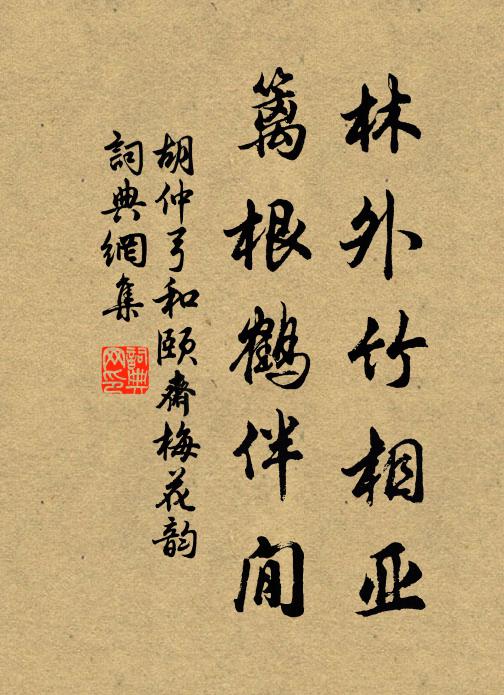 林外竹相亚
篱根鹤伴闲
胡仲弓和颐斋梅花韵
词典網集
词典网印